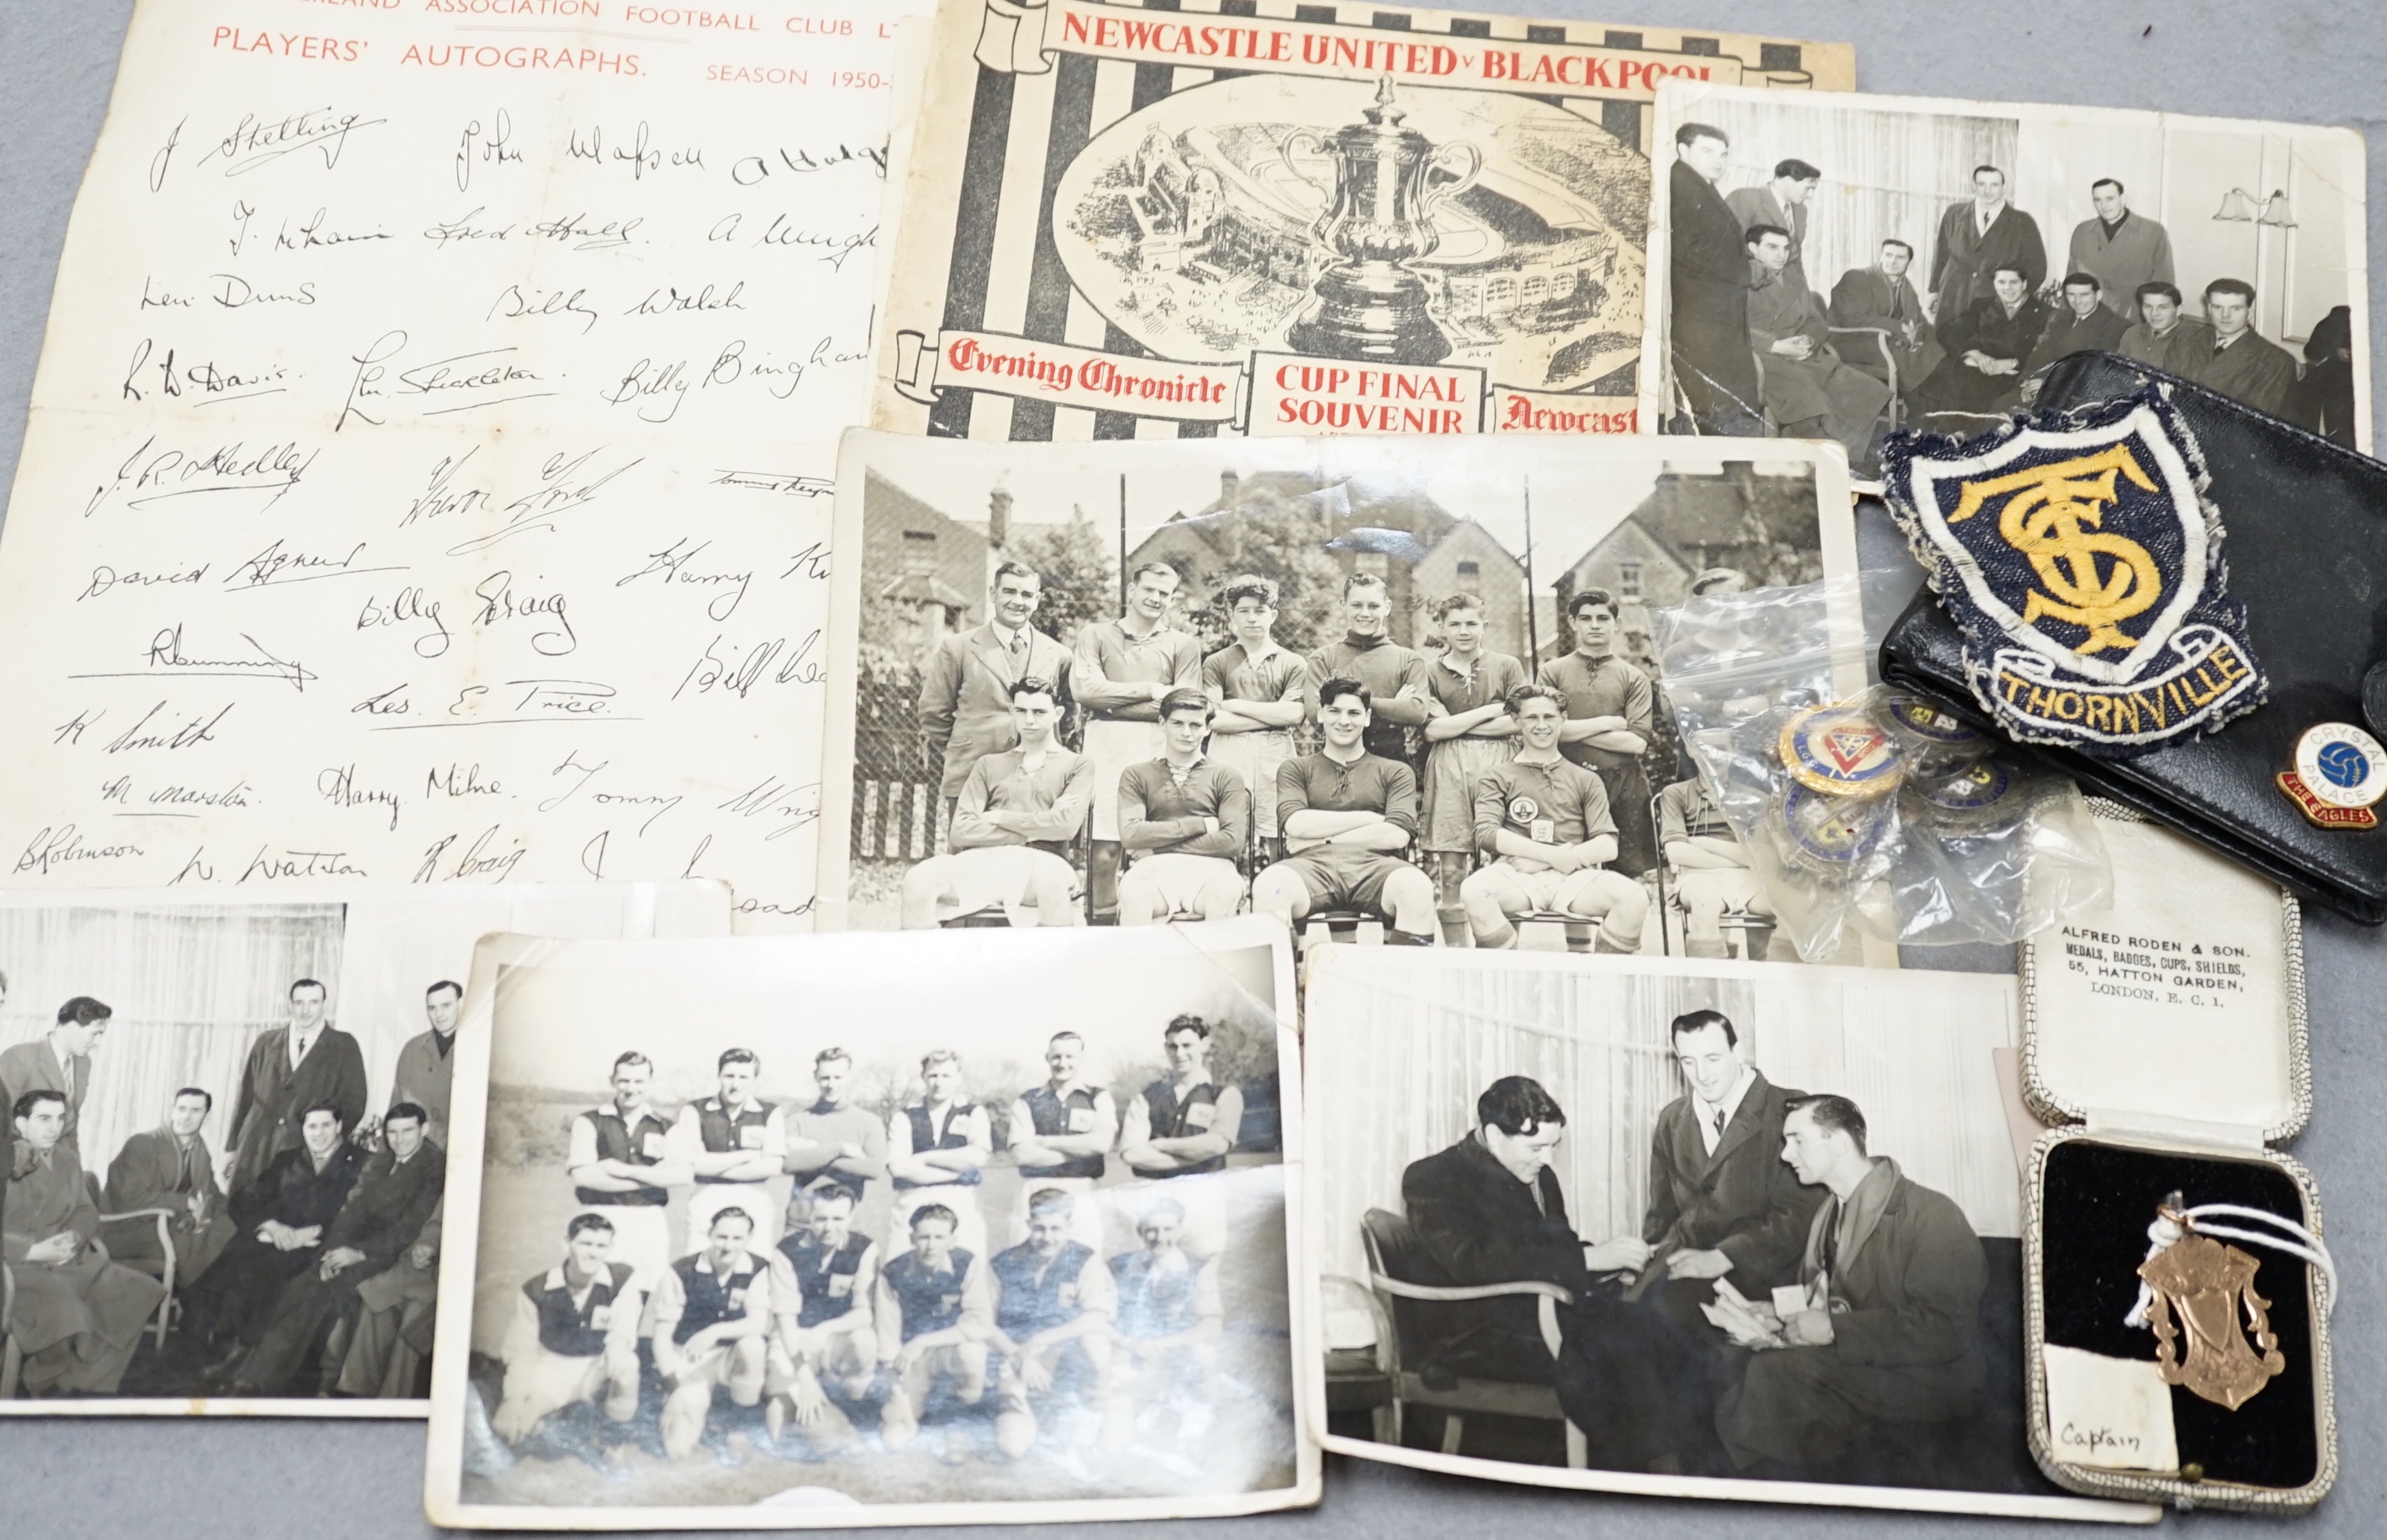 ERLAND ASSOCIATION FOOTBALL CLUB
PLAYERS' AUTOGRAPHS. SEASON 1950-
J Stelling John Watson
Fred Hall. A Wrigh
Len Duns Billy Walsh
R. W. Davis. Len. Shackleton. Billy Bingham
J. R. Hedley Trevor Ford
David Agnew Harry
Billy Craig
Les. E. Price. Bill
K Smith
M Marston. Harry Milne. Tommy Wrig
B Robinson W. Watson R Craig
NEWCASTLE UNITED v BLACKPOOL
Evening Chronicle
CUP FINAL
SOUVENIR
Newcast
TSC
THORNVILLE
CRYSTAL
PALACE
THE EAGLES
ALFRED RODEN & SON.
MEDALS, BADGES, CUPS, SHIELDS,
55, HATTON GARDEN,
LONDON, E. C. 1.
Captain